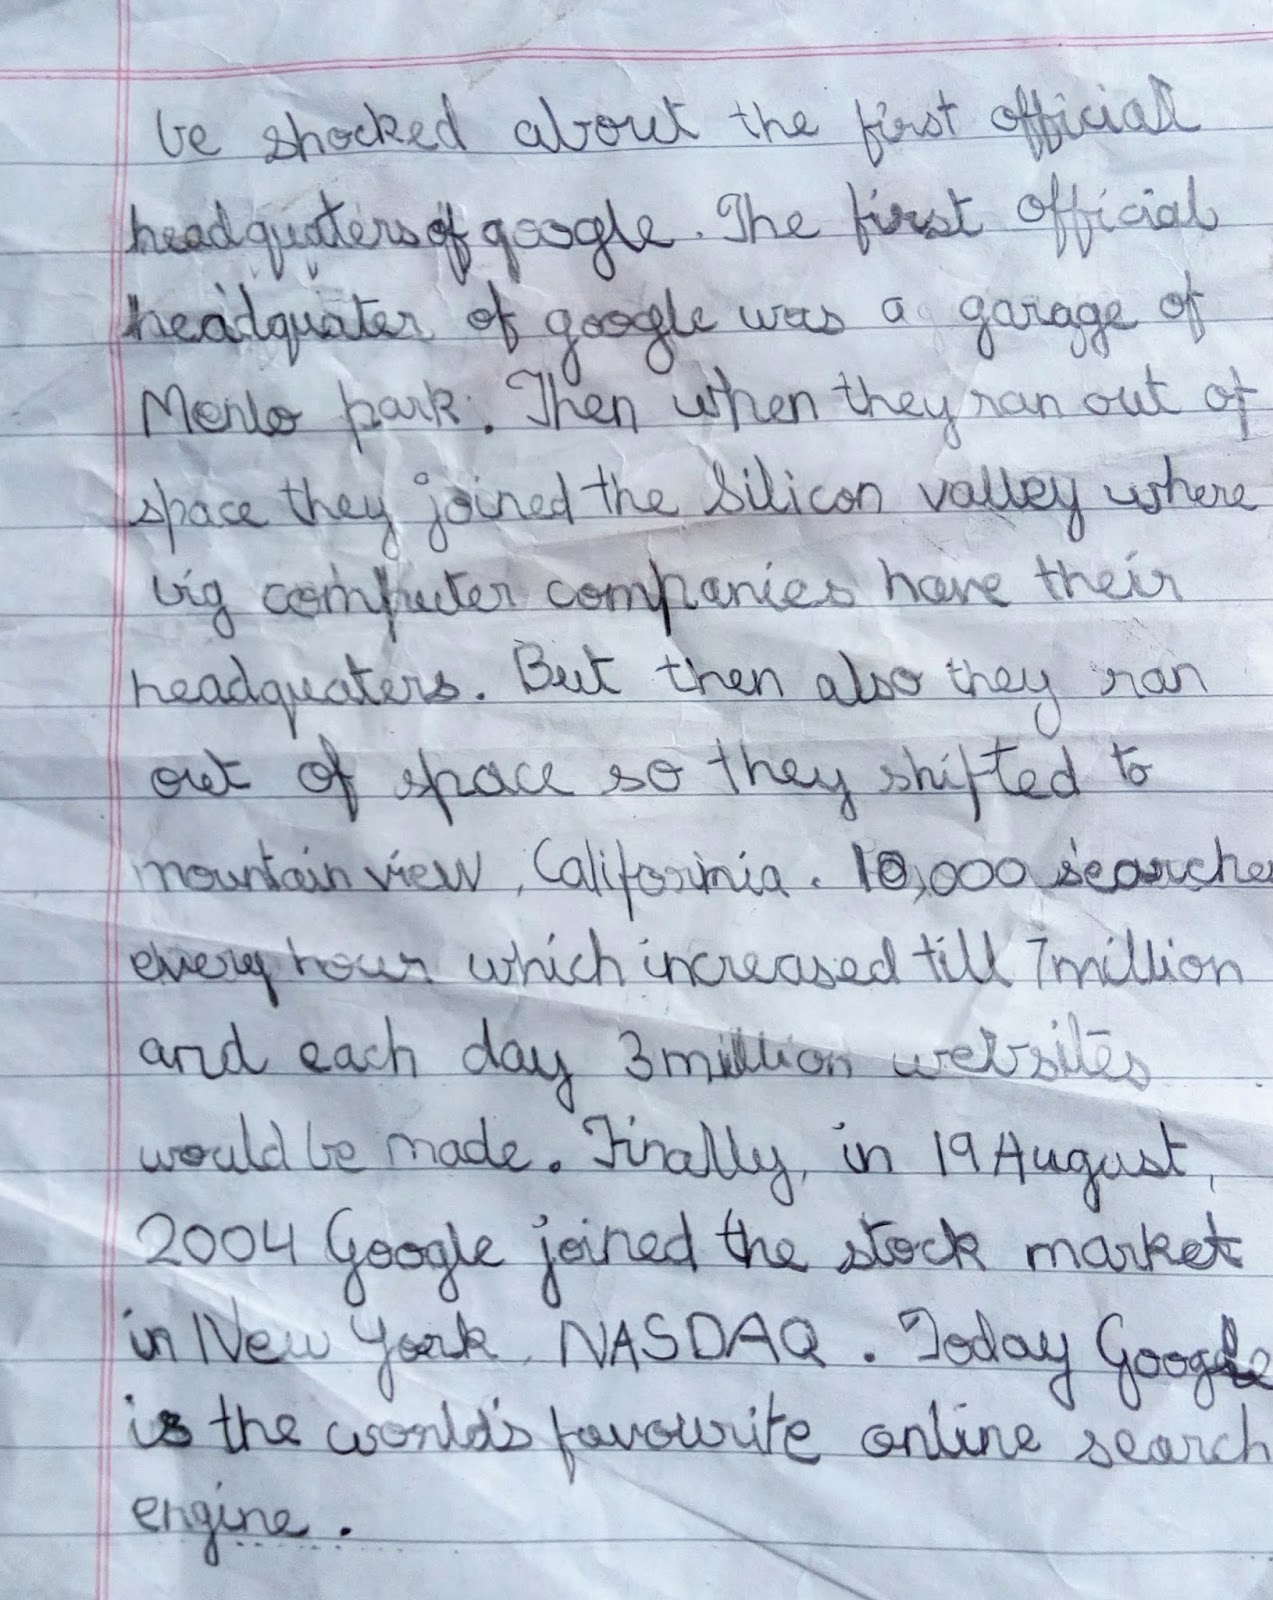 be shocked about the first official
headquaters of google. The first official
headquater of google was a garage of
Menlo park. Then when they ran out of
space they joined the Silicon valley where
big computer companies have their
headquaters. But then also they ran
out of space so they shifted to
mountain view, California. 10,000 searches
every hour which increased till 7 million
and each day 3 million websites
would be made. Finally, in 19 August,
2004 Google joined the stock market
in New York, NASDAQ. Today Google
is the world's favourite online search
engine.